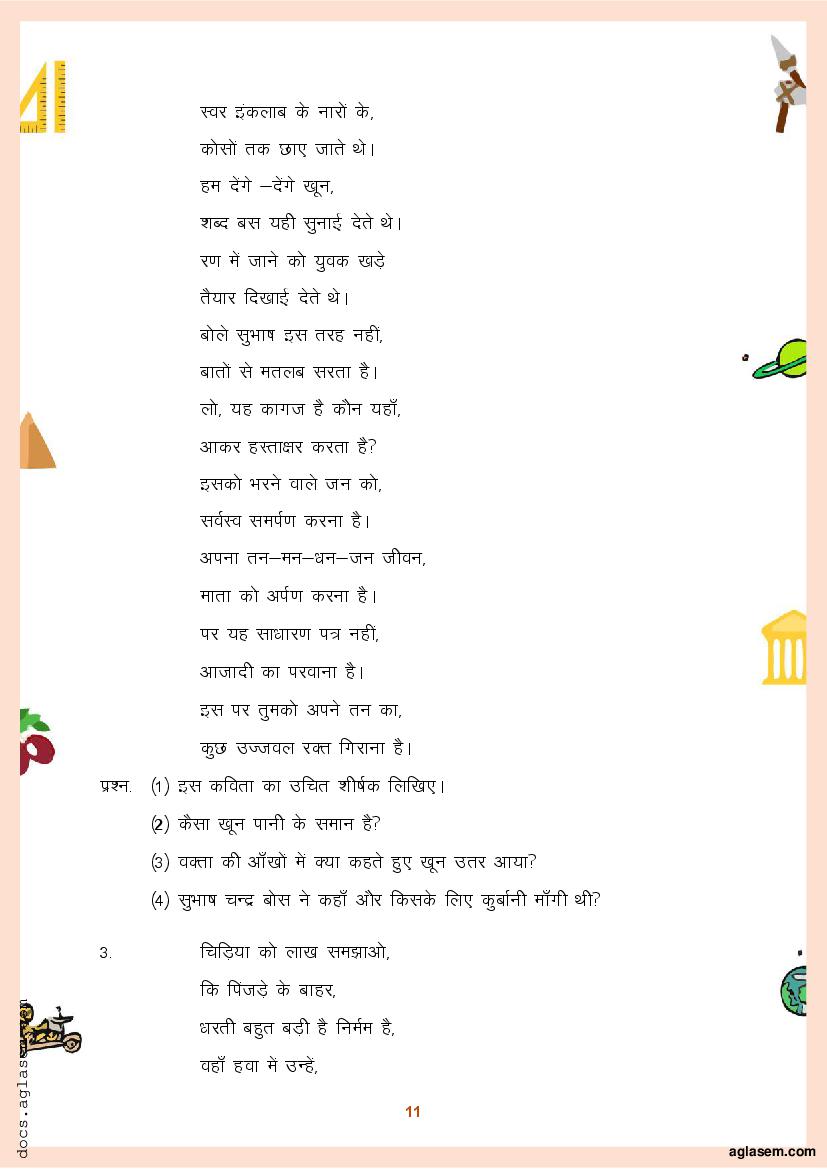 स्वर इंकलाब के नारों के,
कोसों तक छाए जाते थे।
हम देंगे –देंगे खून,
शब्द बस यही सुनाई देते थे।
रण में जाने को युवक खड़े
तैयार दिखाई देते थे।
बोले सुभाष इस तरह नहीं,
बातों से मतलब सरता है।
लो, यह कागज है कौन यहाँ,
आकर हस्ताक्षर करता है?
इसको भरने वाले जन को,
सर्वस्व समर्पण करना है।
अपना तन–मन–धन–जन जीवन,
माता को अर्पण करना है।
पर यह साधारण पत्र नहीं,
आजादी का परवाना है।
इस पर तुमको अपने तन का,
कुछ उज्जवल रक्त गिराना है।
प्रश्न. (1) इस कविता का उचित शीर्षक लिखिए।
(2) कैसा खून पानी के समान है?
(3) वक्ता की आँखों में क्या कहते हुए खून उतर आया?
(4) सुभाष चन्द्र बोस ने कहाँ और किसके लिए कुर्बानी माँगी थी?
3. चिड़िया को लाख समझाओ,
कि पिंजड़े के बाहर,
धरती बहुत बड़ी है निर्मम है,
वहाँ हवा में उन्हें,
11
docs.aglasem
aglasem.com